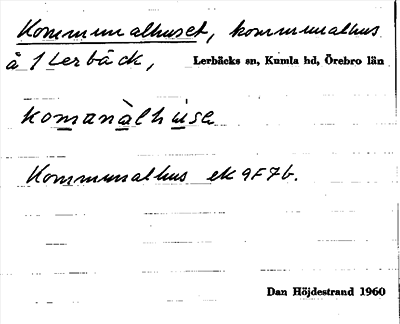 Kommunalhuset, kommunalhus
å 1 Lerbäck, Lerbäcks sn, Kumla hd, Örebro län
komanàlhusa
Kommunalhus ek 9F7b.
Dan Höjdestrand 1960